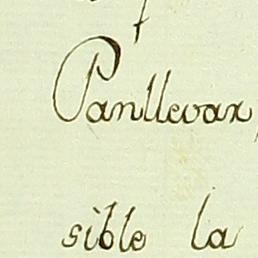 Panllevar,
sible la